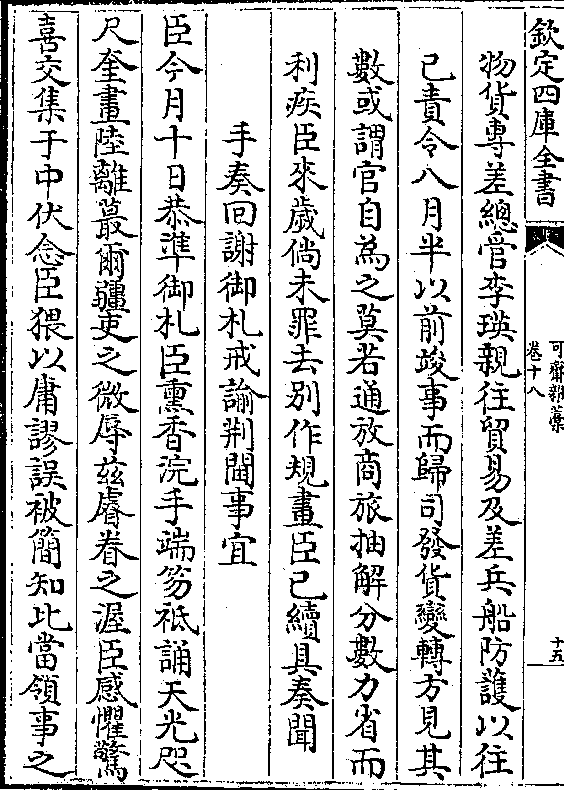 欽定四庫全書
可齋雜藁
卷十八
十五
物貨專差總管李瑛親往貿易及差兵船防護以往
已責令八月半以前竣事而歸司發貨變轉方見其
數或謂官自為之莫若通放商旅抽解分數力省而
利疾臣來歲倘未罪去别作規畫臣已續具奏聞
手奏回謝御札戒諭荆閫事宜
臣今月十日恭準御札臣熏香浣手端笏祇誦天光咫
尺奎畫陸離蕞爾疆吏之微辱兹睿眷之渥臣感懼驚
喜交集于中伏念臣猥以庸謬誤被簡知比當領事之